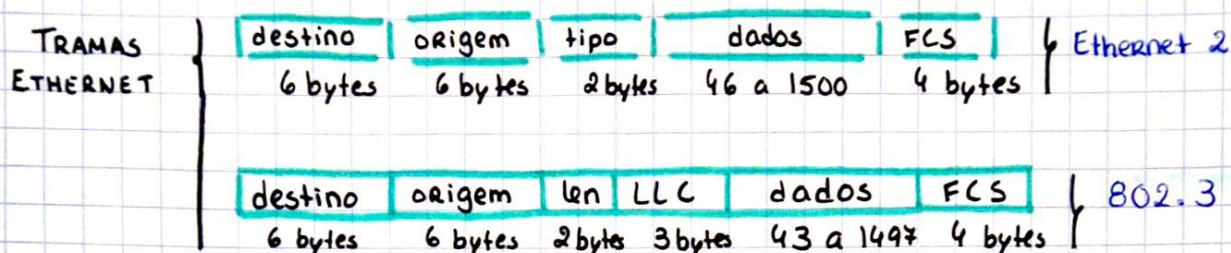 TRAMAS ETHERNET
destino origem tipo dados FCS Ethernet 2
6 bytes 6 bytes 2 bytes 46 a 1500 4 bytes
destino origem len LLC dados FCS 802.3
6 bytes 6 bytes 2 bytes 3 bytes 43 a 1497 4 bytes